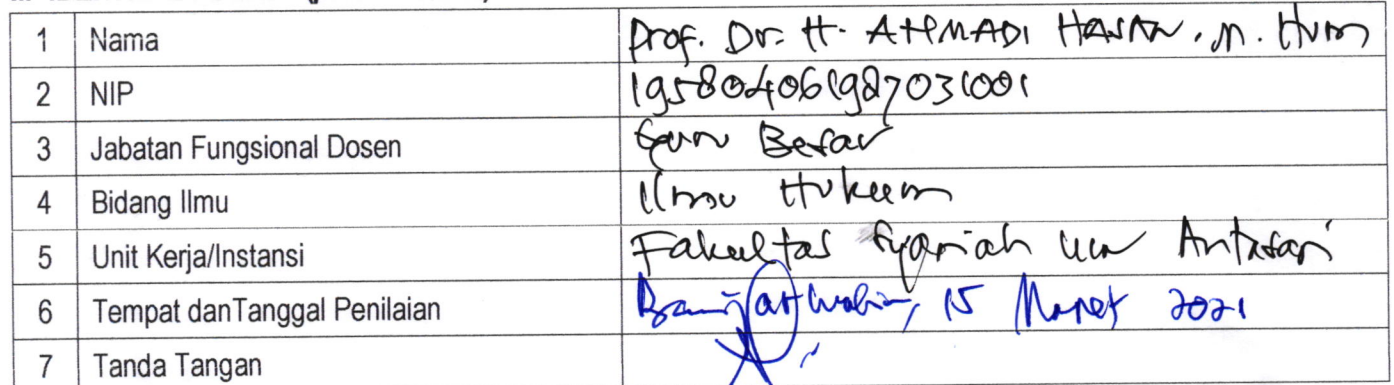 1 Nama Prof. Dr. H. AHMADI HASAN, M. Hum
2 NIP 195804061987031001
3 Jabatan Fungsional Dosen Guru Besar
4 Bidang Ilmu Ilmu Hukum
5 Unit Kerja/Instansi Fakultas Syariah UIN Antasari
6 Tempat danTanggal Penilaian Banjarmasin, 15 Maret 2021
7 Tanda Tangan